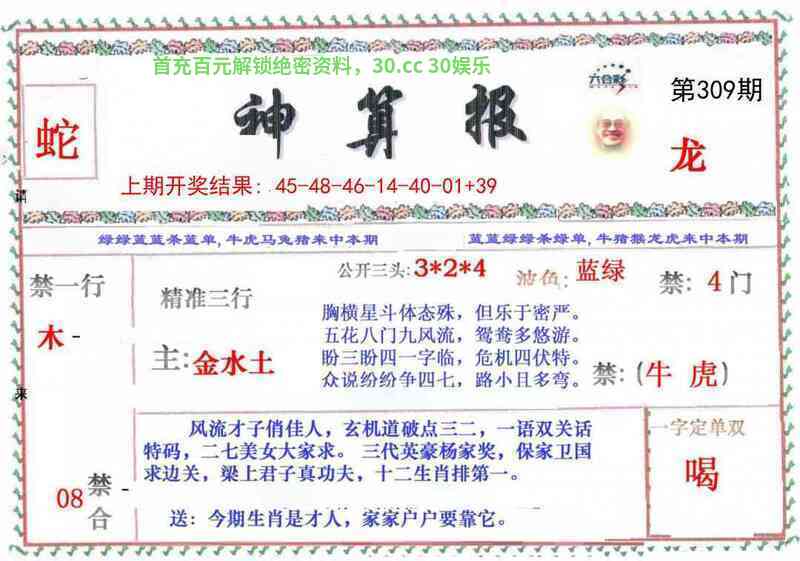 首充百元解锁绝密资料，30.cc 30娱乐
六合彩
第309期
蛇
神算报
龙
请
上期开奖结果：45-48-46-14-40-01+39
绿绿蓝蓝杀蓝单,牛虎马兔猪来中本期
蓝蓝绿绿杀绿单,牛猪猴龙虎来中本期
禁一行
木-
精准三行
主:金水土
公开三头:3*2*4
波色:蓝绿
禁:4门
胸横星斗体态殊，但乐于密严。
五花八门九风流，鸳鸯多悠游。
盼三盼四一字临，危机四伏特。
众说纷纷争四七，路小且多弯。
禁:(牛 虎)
来
08禁合-
风流才子俏佳人，玄机道破点三二，一语双关话
特码，二七美女大家求。 三代英豪杨家奖，保家卫国
求边关，梁上君子真功夫，十二生肖排第一。
送：今期生肖是才人，家家户户要靠它。
一字定单双
喝